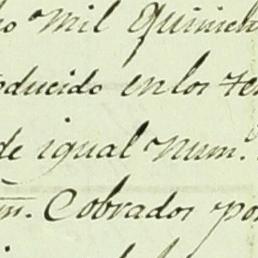 mil Quinien
oducido en los Te
de igual Num.
m. Cobrados po